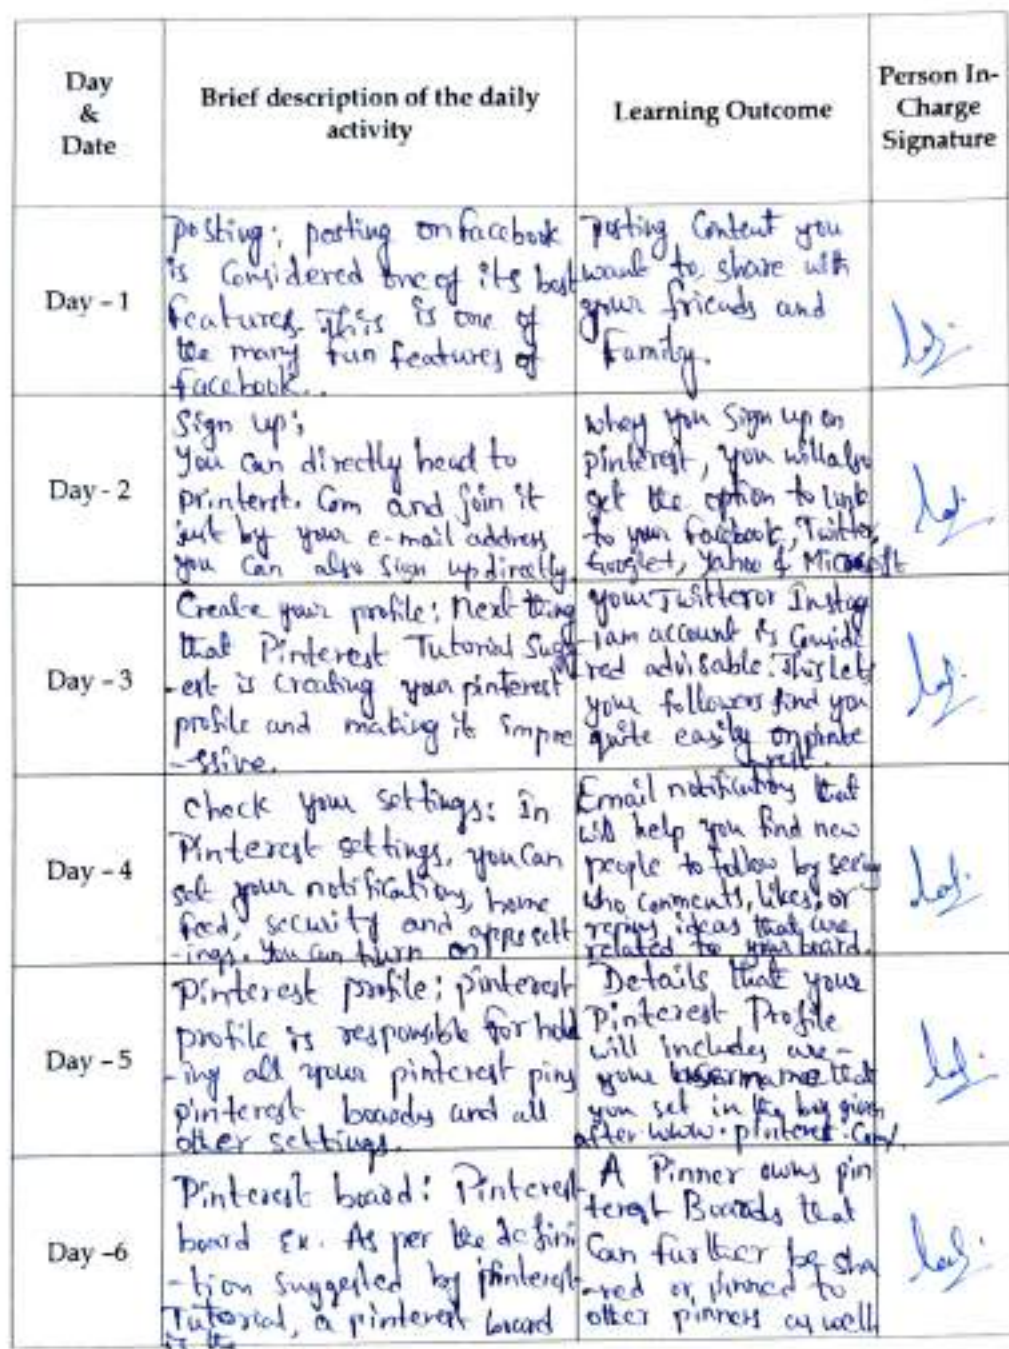 Day
&
Date
Brief description of the daily
activity
Learning Outcome
Person In-
Charge
Signature
Day - 1
posting; posting on facebook
is Considered one of its best
features. This is one of
the many fun features of
facebook..
posting Content you
want to share with
your friends and
Family.
Day - 2
Sign up;
You can directly head to
printerst. Com and join it
just by your e-mail address
you can also Sign up directly.
when you Sign up on
pinterest, you will also
get the option to link
to your Facebook, Twitter,
Google+, Yahoo & Microsoft
Day - 3
Create your profile; Next thing
that Pinterest Tutorial Sugg
-est is Creating your pinterest
profile and making it impre
-ssive.
your Twitter or Instag
-ram account is Conside
-red advisable. This lets
your followers find you
quite easily on pinte
rest.
Day - 4
Check your settings: In
Pinterest settings, you can
set your notifications, home
feed, security and apps sett
-ings. You can turn on
Email notifications that
will help you find new
people to follow by seeing
who comments, likes, or
repins ideas that are
related to your board.
Day - 5
Pinterest profile; pinterest
profile is responsible for hold
-ing all your pinterest pins
pinterest boards and all
other settings.
Details that your
Pinterest Profile
will includes are -
your username that
you set in the box given
after www.pinterest.Com/.
Day -6
Pinterest board: Pinterest
board Ex. As per the defini
-tion Suggested by pinterest
Tutorial, a pinterest board
is the
A Pinner owns pin
terest Boards that
Can further be sha
-red or pinned to
other pinners as well